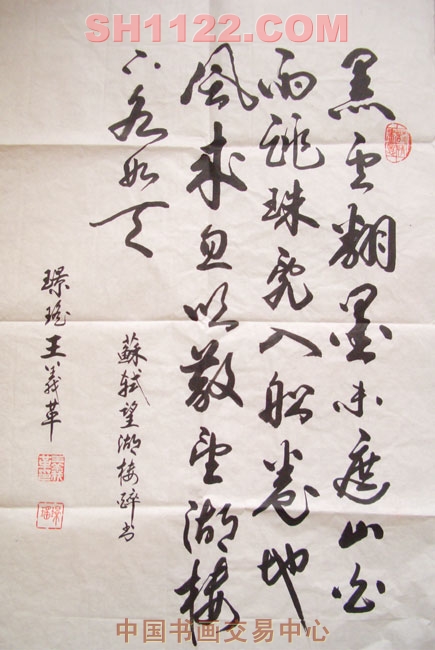 SH1122.COM
黑云翻墨未遮山白
雨跳珠亂入船卷地
風来忽吹散望湖楼
下水如天
蘇軾望湖楼醉书
璟瑤王義革
中国书画交易中心